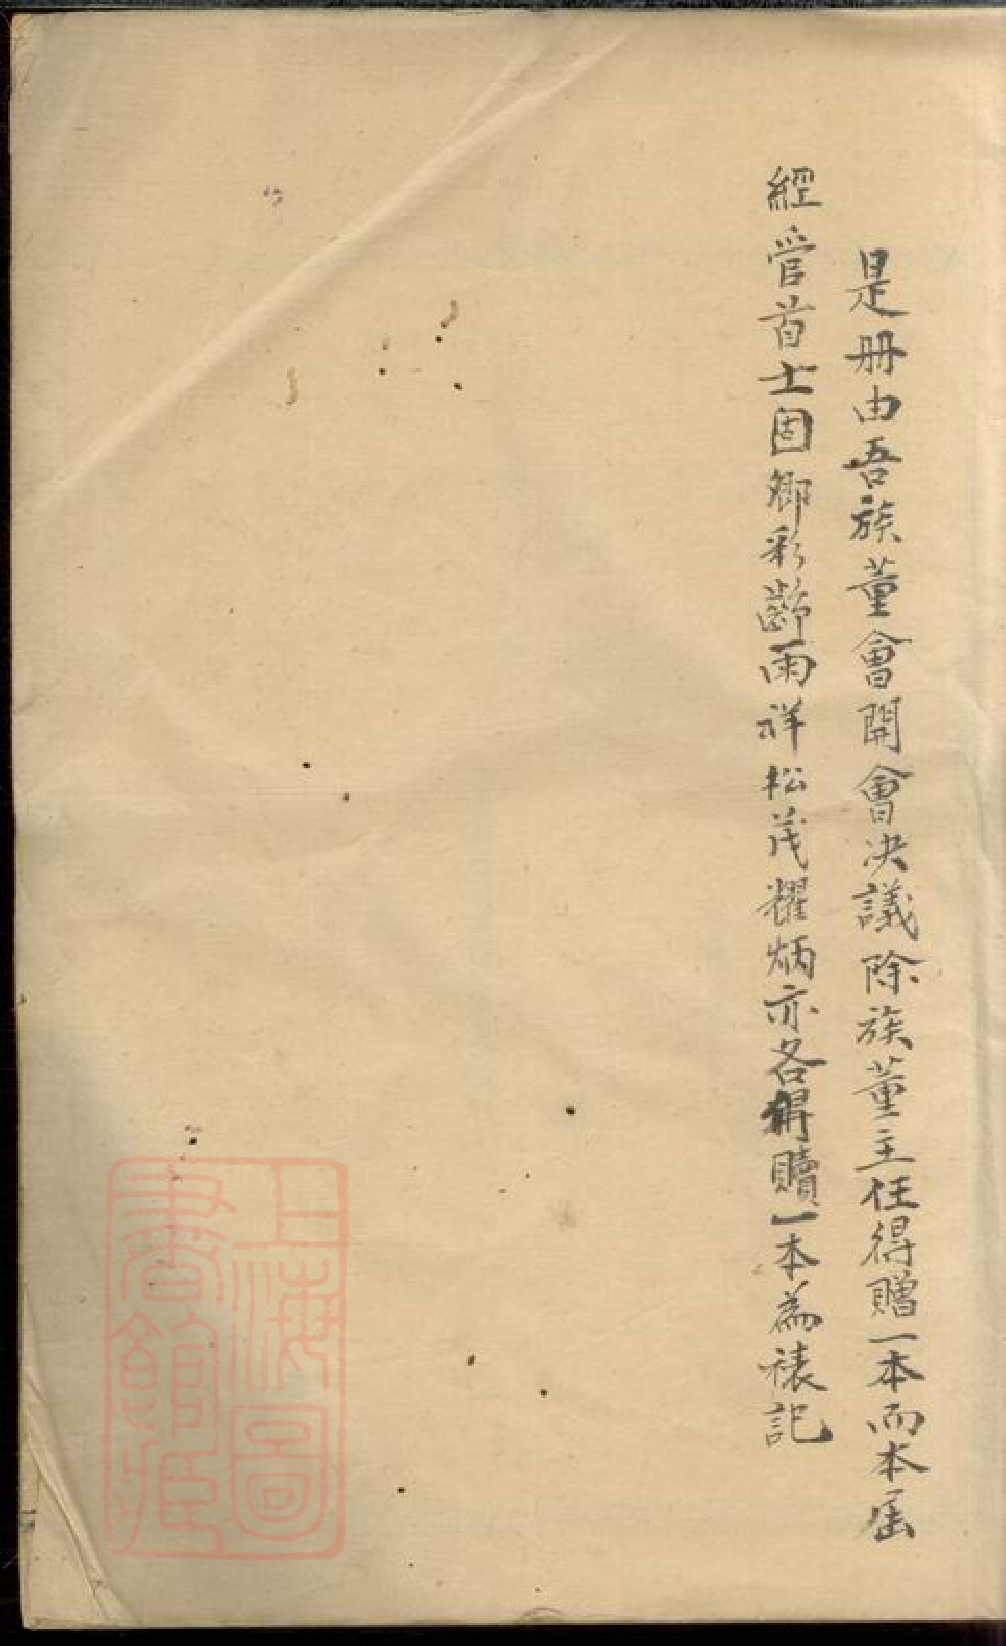 是册由吾族董會開會决議除族董主任得贈一本而本届
經管首士固卿彩齡雨祥松茂耀炳亦各得贖一本為褾記
上海圖
書館藏